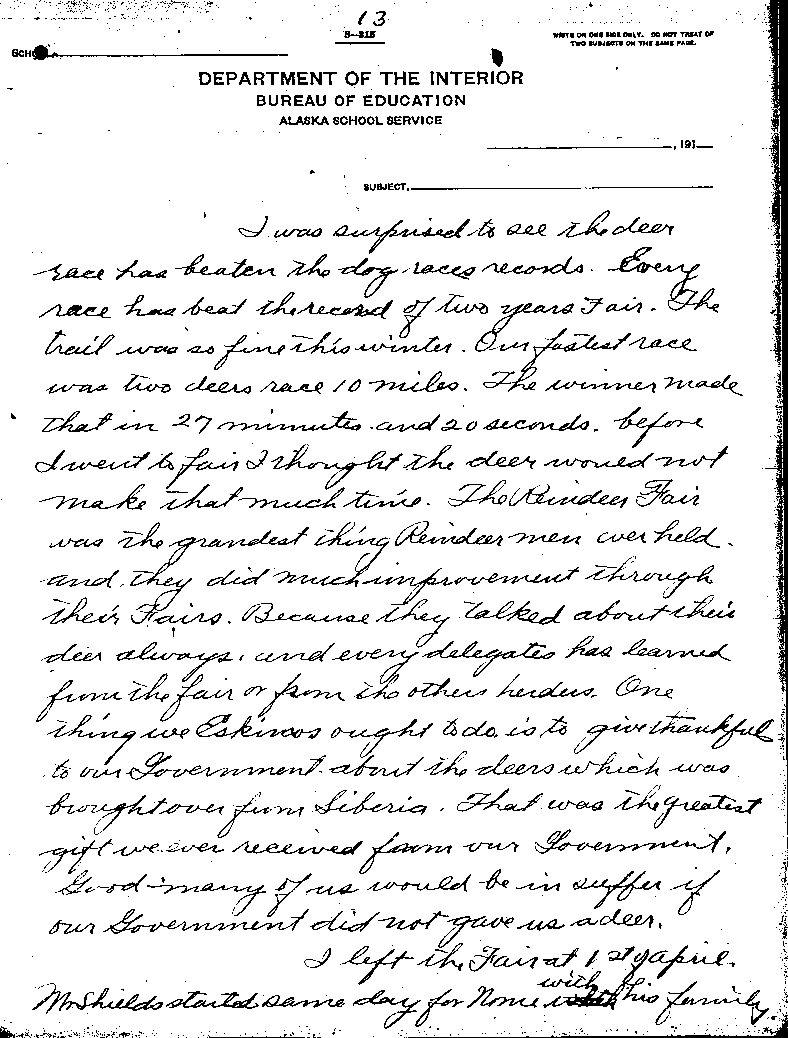 13
8-215
WRITE ON ONE SIDE ONLY. DO NOT TREAT OF
TWO SUBJECTS ON THE SAME PAGE.
SCHO
DEPARTMENT OF THE INTERIOR
BUREAU OF EDUCATION
ALASKA SCHOOL SERVICE
, 191
SUBJECT,
I was surprised to see the deer
race has beaten the dog races records. Every
race has beat the record of two years Fair. The
trail was so fine this winter. Our fastest race
was two deers race 10 miles. The winner made
that in 27 minutes and 20 seconds. before
I went to fair I thought the deer would not
make that much time. The Reindeer Fair
was the grandest thing Reindeer men ever held.
and they did much improvement through
their Fairs. Because they talked about their
deer always. and every delegates has learned
from the fair or from the others herders. One
thing we Eskimos ought to do is to give thankful
to our Government about the deers which was
brought over from Siberia. That was the greatest
gift we ever received from our Government.
Good-many of us would be in suffer if
our Government did not gave us a deer.
I left the Fair at 1st of april.
Mr Shields started same day for Nome with his family.